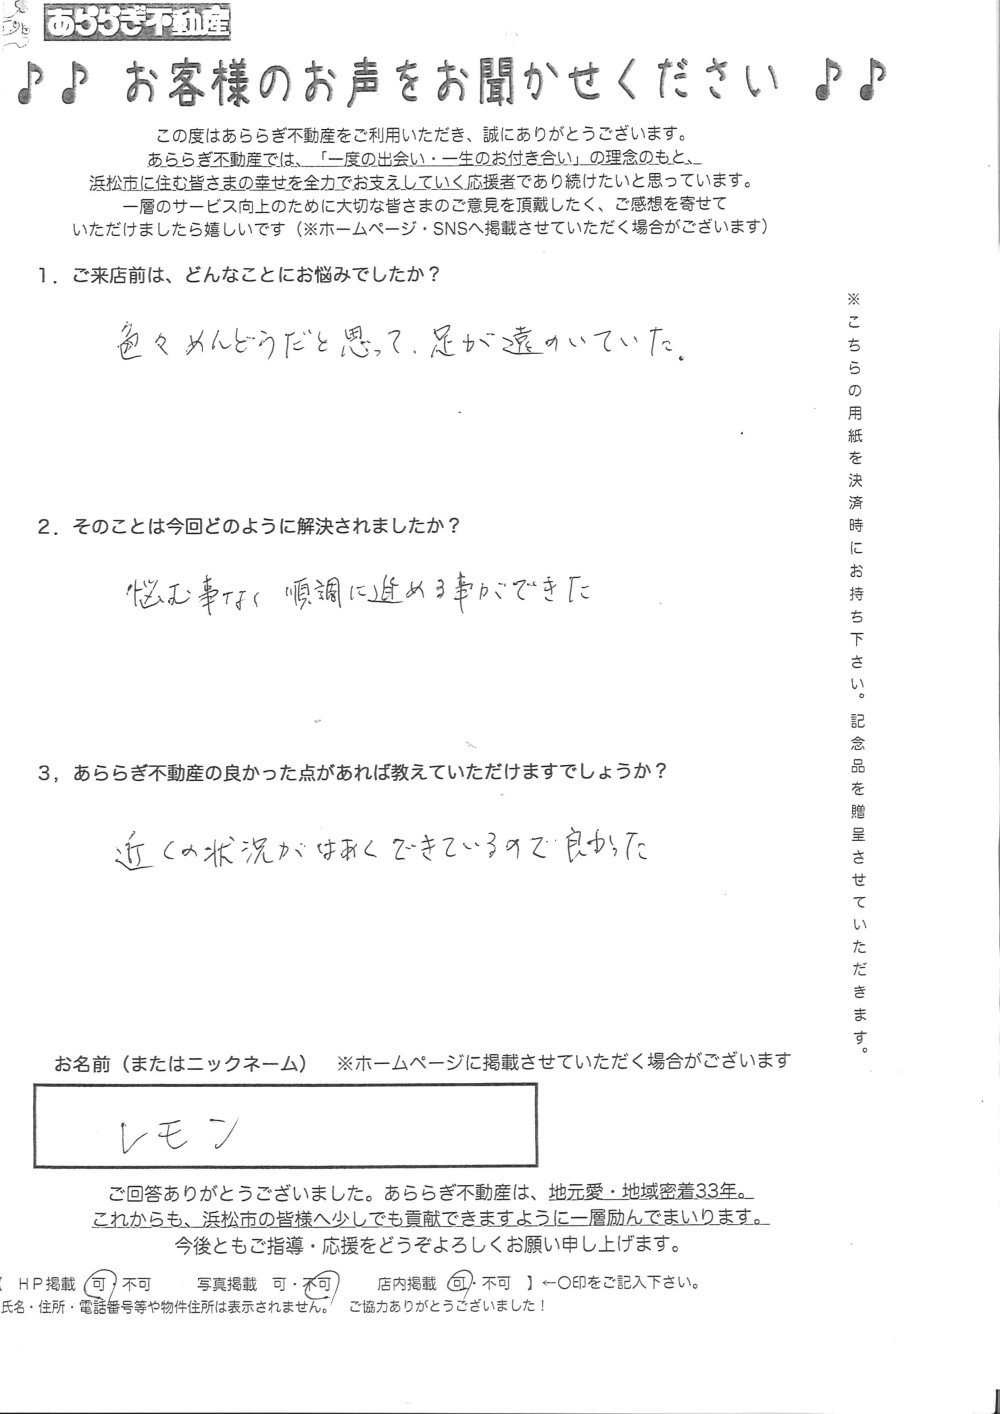 あららぎ不動産
♪♪ お客様のお声をお聞かせください ♪♪
この度はあららぎ不動産をご利用いただき、誠にありがとうございます。
あららぎ不動産では、「一度の出会い・一生のお付き合い」の理念のもと、
浜松市に住む皆さまの幸せを全力でお支えしていく応援者であり続けたいと思っています。
一層のサービス向上のために大切な皆さまのご意見を頂戴したく、ご感想を寄せて
いただけましたら嬉しいです(※ホームページ・SNSへ掲載させていただく場合がございます)
1．ご来店前は、どんなことにお悩みでしたか？
色々めんどうだと思って、足が遠のいていた。
2．そのことは今回どのように解決されましたか？
悩む事なく 順調に進める事ができた
3，あららぎ不動産の良かった点があれば教えていただけますでしょうか？
近くの状況がはあくできているので良かった
※こちらの用紙を決済時にお持ち下さい。記念品を贈呈させていただきます。
お名前（またはニックネーム） ※ホームページに掲載させていただく場合がございます
レモン
ご回答ありがとうございました。あららぎ不動産は、地元愛・地域密着33年。
これからも、浜松市の皆様へ少しでも貢献できますように一層励んでまいります。
今後ともご指導・応援をどうぞよろしくお願い申し上げます。
【 ＨＰ掲載 可・不可 写真掲載 可・不可 店内掲載 可・不可 】←〇印をご記入下さい。
氏名・住所・電話番号等や物件住所は表示されません。 ご協力ありがとうございました！